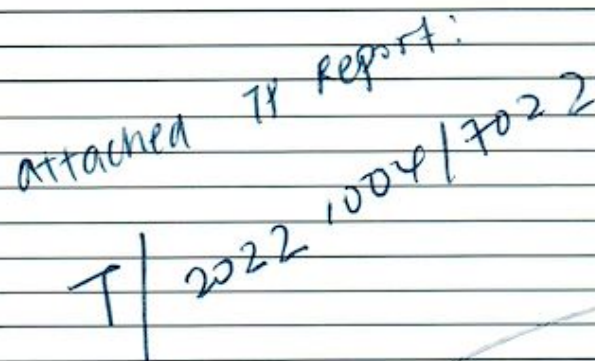 attached TP Report:
T/20221004/7022